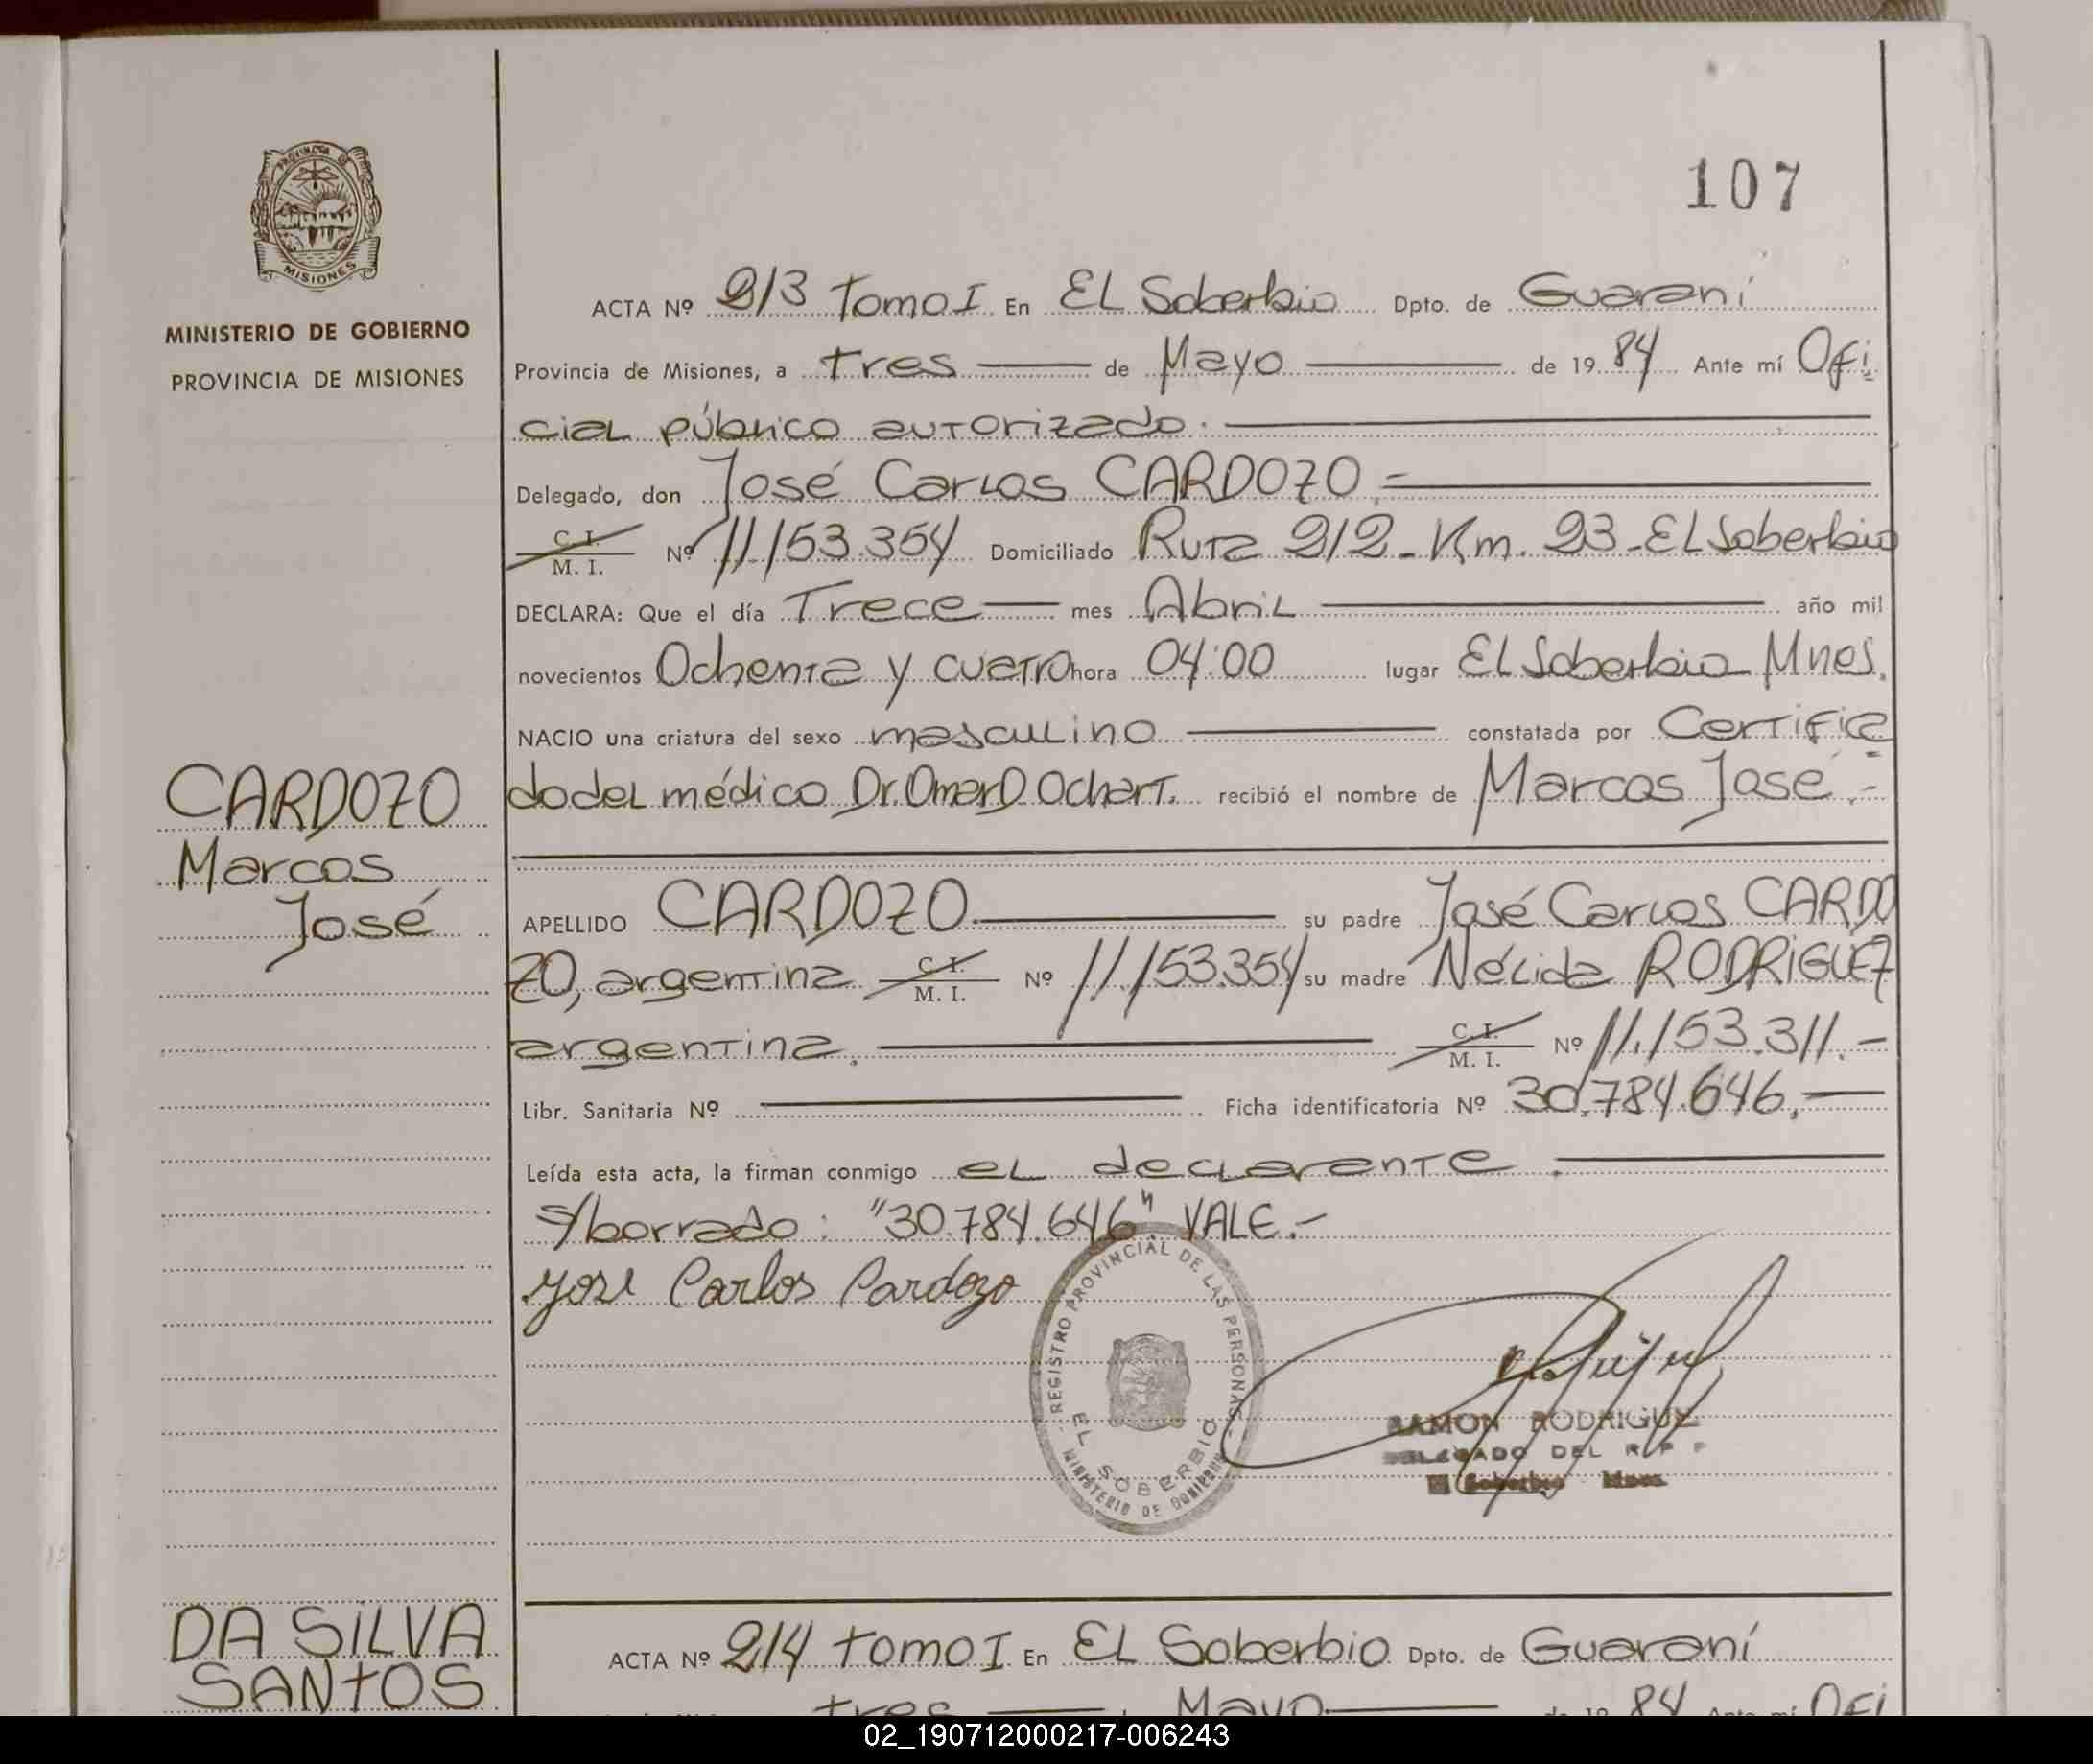 PROVINCIA DE
MISIONES
MINISTERIO DE GOBIERNO
PROVINCIA DE MISIONES
107
ACTA Nº 213 Tomo I En EL Soberbio Dpto. de Guaraní
Provincia de Misiones, a tres de Mayo de 19 84 Ante mí Ofi
cial público autorizado.
Delegado, don José Carlos CARDOZO.=
C. I. M. I. Nº 11.153.354 Domiciliado Ruta 212 - Km. 23 - EL Soberbio
DECLARA: Que el día Trece mes Abril año mil
novecientos Ochenta y cuatro hora 04:00 lugar EL Soberbio Mnes.
NACIO una criatura del sexo masculino constatada por Certifica
do del médico Dr. Omar D Ochart. recibió el nombre de Marcos José.-
CARDOZO
Marcos
José
APELLIDO CARDOZO su padre José Carlos CARDO
ZO, argentina C. I. M. I. Nº 11.153.354 su madre Nélida RODRIGUEZ
argentina. C. I. M. I. Nº 11.153.311.-
Libr. Sanitaria Nº Ficha identificatoria Nº 30.784.646.
Leída esta acta, la firman conmigo el declarante.
s/borrado: "30.784.646" VALE.-
José Carlos Cardozo
REGISTRO PROVINCIAL DE LAS PERSONAS
EL SOBERBIO
MINISTERIO DE GOBIERNO
RAMON RODRIGUEZ
DELEGADO DEL R P P
El Soberbio Mnes.
DA SILVA
SANTOS
ACTA Nº 214 tomo I En EL Soberbio Dpto. de Guaraní
tres Mayo de 19 84 Ante mí Ofi
02_190712000217-006243